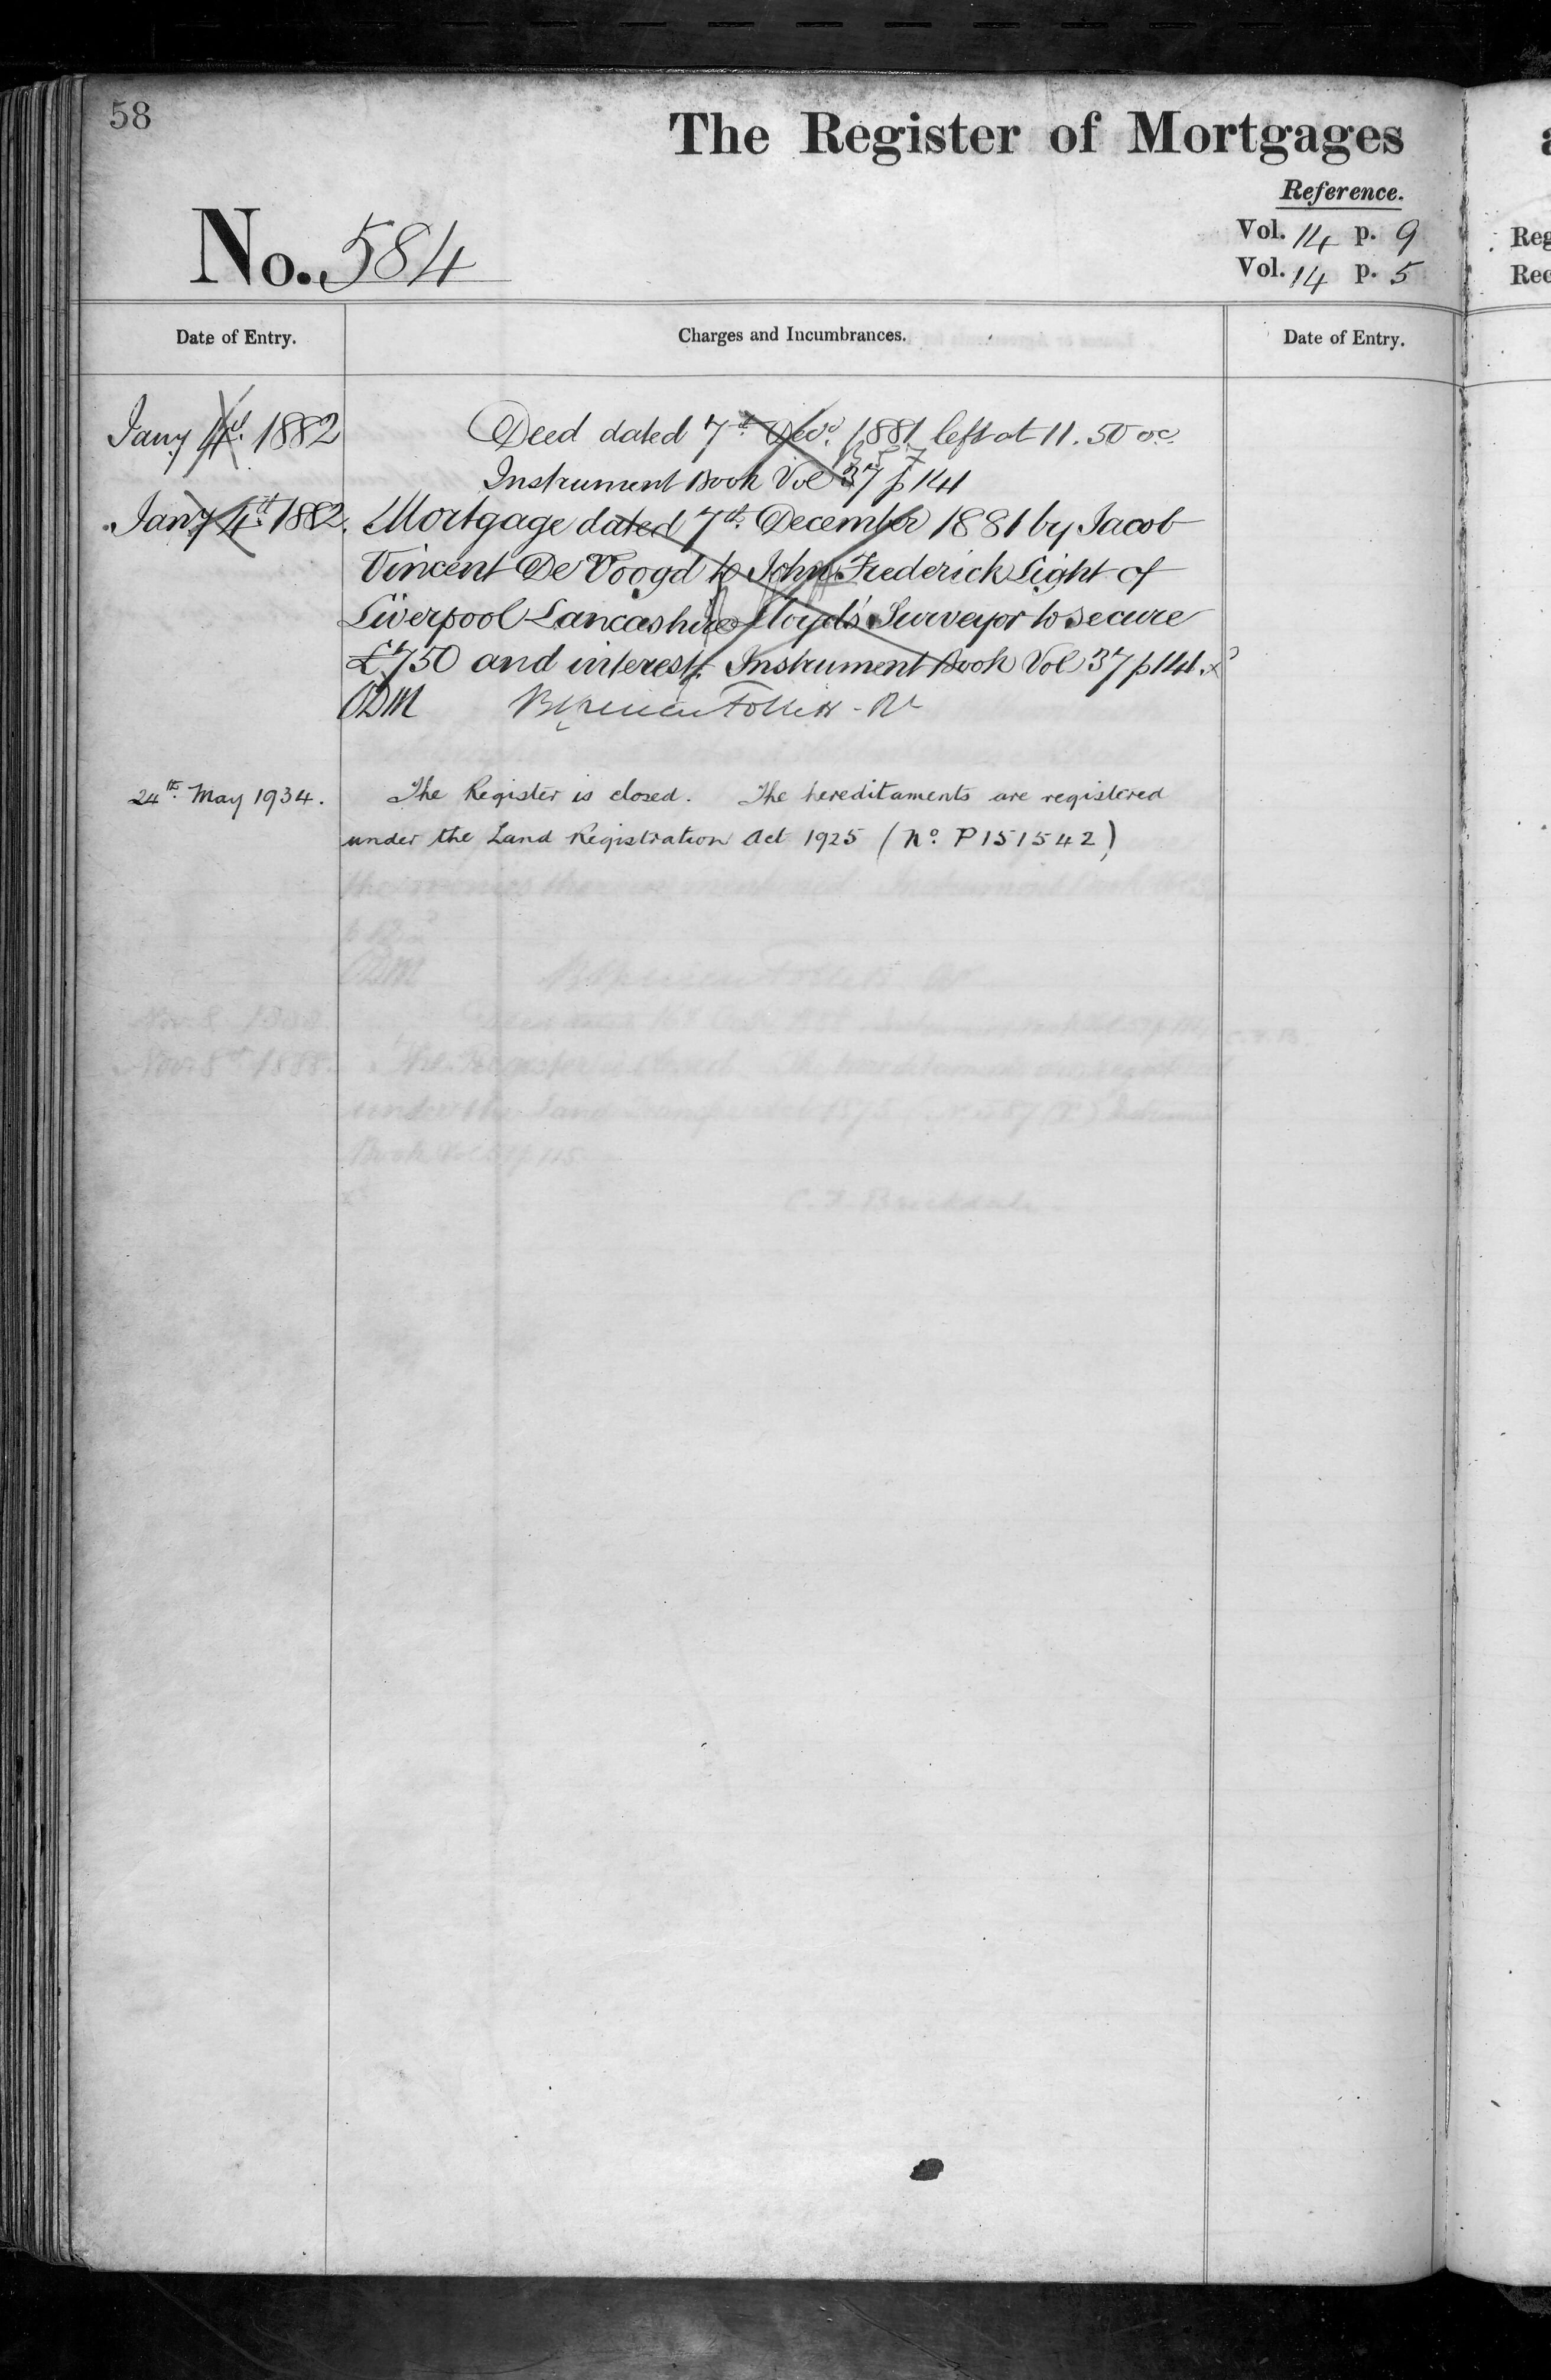 58
The Register of Mortgages
Reference.
No. 584
Vol. 14 p. 9
Vol. 14 p. 5
Reg
Rec
Date of Entry.
Charges and Incumbrances.
Date of Entry.
Jany 1882
Deed dated 7th Decr. 1881 left at 11.50 oc.
Instrument Book Vol 37 p 141
Jany 4th 1882.
Mortgage dated 7th December 1881 by Jacob
Vincent De Voogd to John Frederick Light of
Liverpool Lancashire Lloyd's Surveyor to secure
£750 and interest. Instrument Book Vol 37 p 141.
ODM
24th May 1934.
The Register is closed. The hereditaments are registered
under the Land Registration Act 1925 (No. P151542)